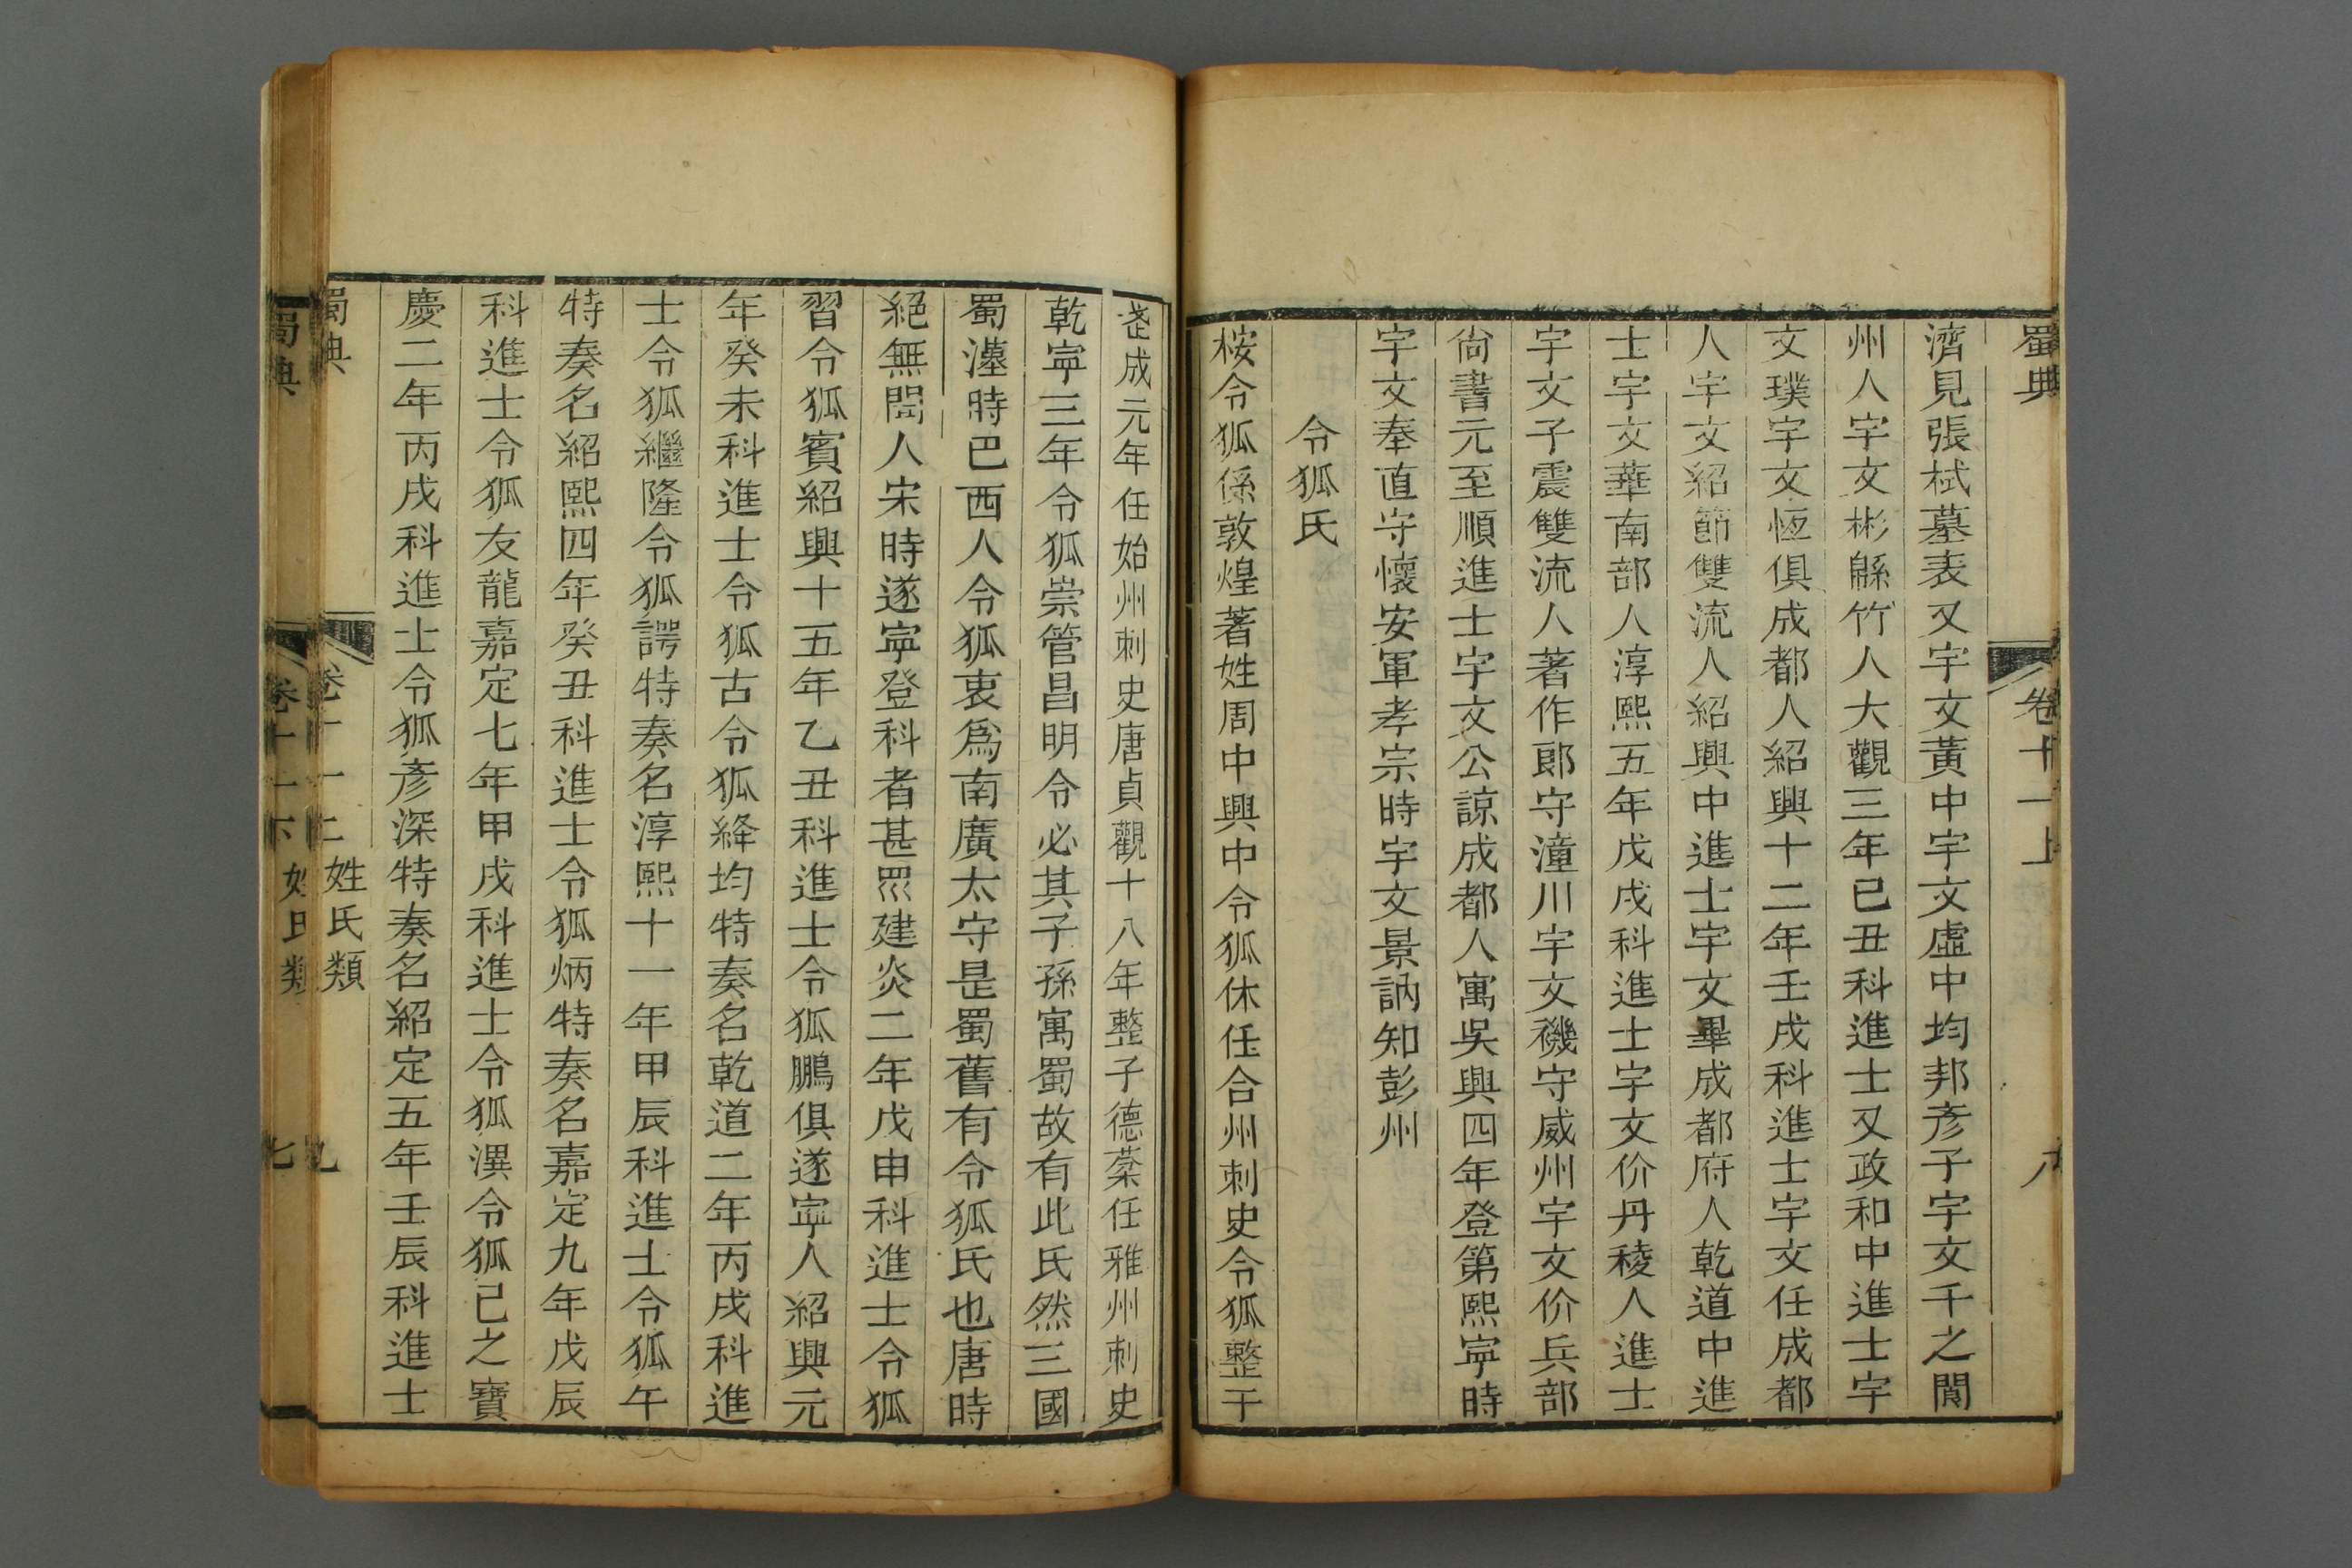 蜀典 卷十一上
濟見張栻墓表又宇文黃中宇文虛中均邦彥子宇文千之閬
州人宇文彬緜竹人大觀三年己丑科進士又政和中進士宇
文璞宇文恆俱成都人紹興十二年壬戌科進士宇文任成都
人宇文紹節雙流人紹興中進士宇文畢成都府人乾道中進
士宇文華南部人淳熙五年戊戌科進士宇文价丹稜人進士
宇文子震雙流人著作郎守潼川宇文禨守威州宇文价兵部
尙書元至順進士宇文公諒成都人寓吳興四年登第熙寧時
宇文奉直守懷安軍孝宗時宇文景訥知彭州
令狐氏
桉令狐係敦煌著姓周中興中令狐休任合州刺史令狐整于
成元年任始州刺史唐貞觀十八年整子德棻任雅州刺史
乾寧三年令狐崇管昌明令必其子孫寓蜀故有此氏然三國
蜀漢時巴西人令狐衷爲南廣太守是蜀舊有令狐氏也唐時
絕無聞人宋時遂寧登科者甚眾建炎二年戊申科進士令狐
習令狐賓紹興十五年乙丑科進士令狐鵬俱遂寧人紹興元
年癸未科進士令狐古令狐絳均特奏名乾道二年丙戌科進
士令狐繼隆令狐諤特奏名淳熙十一年甲辰科進士令狐午
特奏名紹熙四年癸丑科進士令狐炳特奏名嘉定九年戊辰
科進士令狐友龍嘉定七年甲戌科進士令狐潩令狐己之寶
慶二年丙戌科進士令狐彥深特奏名紹定五年壬辰科進士
蜀典 卷十一上 姓氏類
蜀典 卷十一下 姓氏類 七